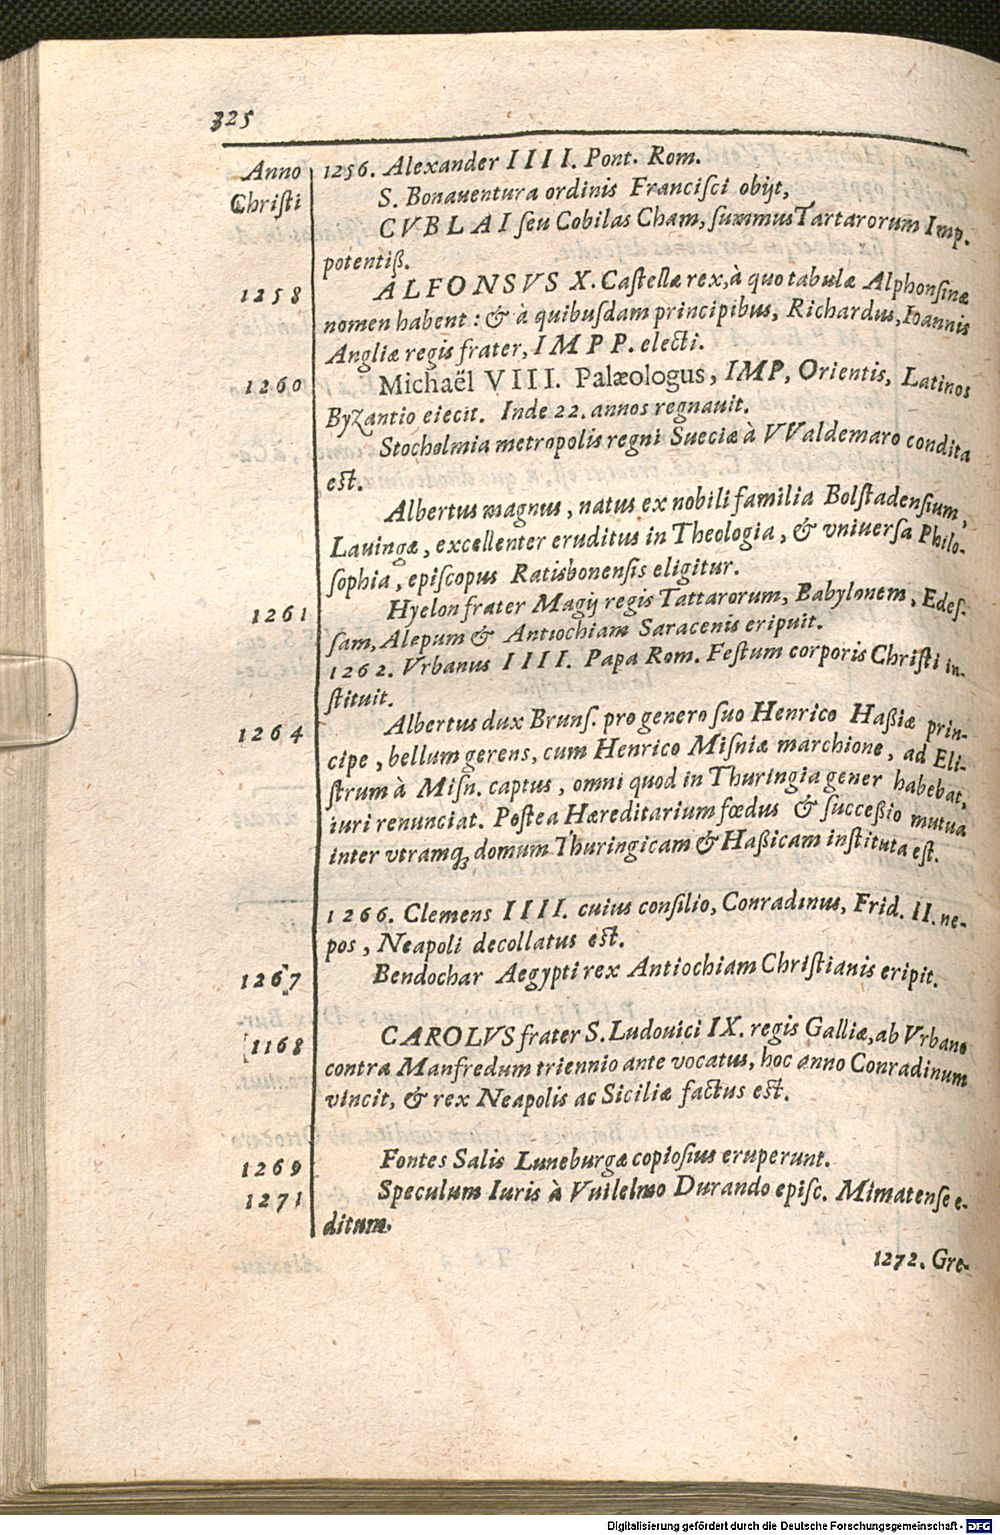 325
Anno 1256. Alexander IIII. Pont. Rom.
Christi S. Bonauentura ordinis Franciſci obijt,
CVBLAI ſeu Cobilas Cham, ſummus Tartarorum Imp.
potentiß.
1258 ALFONSVS X. Caſtellæ rex, à quo tabulæ Alphonſinæ
nomen habent: & à quibuſdam principibus, Richardus, Ioannis
Angliæ regis frater, IMPP. electi.
1260 Michaël VIII. Palæologus, IMP, Orientis, Latinos
Byzantio eiecit. Inde 22. annos regnauit.
Stocholmia metropolis regni Sueciæ à VValdemaro condita
est.
Albertus magnus, natus ex nobili familia Bolſtadenſium,
Lauingæ, excellenter eruditus in Theologia, & vniuerſa Philo-
ſophia, epiſcopus Ratisbonenſis eligitur.
1261 Hyelon frater Magij regis Tattarorum, Babylonem, Edeſ-
ſam, Alepum & Antiochiam Saracenis eripuit.
1262. Vrbanus IIII. Papa Rom. Feſtum corporis Chriſti in-
ſtituit.
1264 Albertus dux Brunſ. pro genero ſuo Henrico Haßiæ prin-
cipe, bellum gerens, cum Henrico Miſniæ marchione, ad Eli-
ſtrum à Miſn. captus, omni quod in Thuringia gener habebat,
iuri renunciat. Poſtea Hæreditarium fœdus & ſucceßio mutua
inter vtramq; domum Thuringicam & Haßicam inſtituta eſt.
1266. Clemens IIII. cuius conſilio, Conradinus, Frid. II. ne-
pos, Neapoli decollatus est.
1267 Bendochar Aegypti rex Antiochiam Chriſtianis eripit.
1168 CAROLVS frater S. Ludouici IX. regis Galliæ, ab Vrbano
contra Manfredum triennio ante vocatus, hoc anno Conradinum
vincit, & rex Neapolis ac Siciliæ factus est.
1269 Fontes Salis Luneburgæ copioſius eruperunt.
1271 Speculum Iuris à Vuilelmo Durando epiſc. Mimatenſe e-
ditum.
1272. Gre-
Digitalisierung gefördert durch die Deutsche Forschungsgemeinschaft - DFG